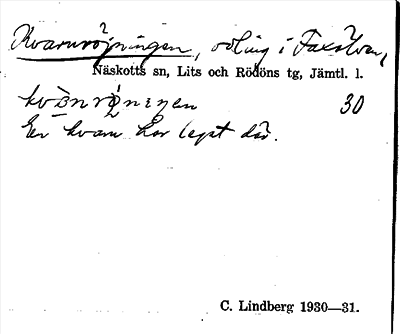 Kvarnröjningen, odling i Faxälven,
Näskotts sn, Lits och Rödöns tg, Jämtl. l.
30
En kvarn har legat där.
C. Lindberg 1930—31.